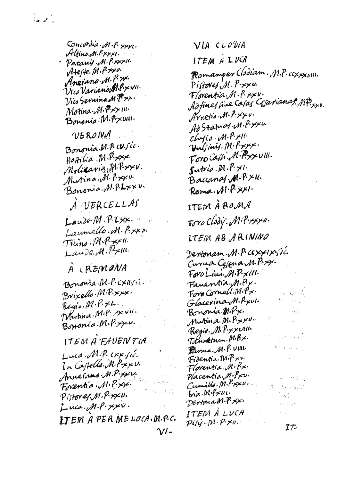 Concordia. M.P. xxxi.
Altino. M.P. xxxi.
Patavis. M.P. xxxii.
Ateste. M.P. xxv.
Aneiano. M.P. xx.
Vico Variano. M.P. xviii.
Vico Sernino. M.P. xx.
Mutina. M.P. xxiii.
Bononia. M.P. xviii.
VERONA
Bononia. M.P. cv. sic.
Hostilia. M.P. xxx.
Colicaria. M.P. xxv.
Mutina. M.P. xxv.
Bononia. M.P. Lxxv.
À VERCELLAS
Laude. M.P. Lxx.
Laumello. M.P. xxv.
Ticino. M.P. xxii.
Laude. M.P. xiii.
À CREMONA
Bononia M.P.
Brixello. M.P. xxx.
Regio. M.P. XL.
Mutina. M.P. xvii.
Bononia. M.P. xxv.
ITEM À FAVENTIA
Luca. M.P. cxx. sic.
In Castello. M.P. xxv.
Anneiano. M.P. xxv.
Florentia. M.P. xx.
Pistores. M.P. xxv.
Luca. M.P. xxv.
ITEM A PARME LUCA. M.P.C.
VI-
VIA CLODIA
ITEM À LUCA
Romam per Clodiam. M.P. ccxxxviii.
Pistores. M.P. xxv.
Florentia. M.P. xxv.
Ad fines sive Casas Cesarianas M.P. xxv.
Arretio. M.P. xxv.
Ad Statuas. M.P. xxv.
Clusio. M.P. xii.
Vulsinis. M.P. xxx.
Foro Cassi. M.P. xxviii.
Sutrio. M.P. xi.
Baccanas. M.P. xii.
Roma. M.P. xxi.
ITEM À ROMA
Foro Clodij. M.P. xxxii.
ITEM AB ARIMINO
Dertonam. M.P.
Curva Cesena. M.P. xx.
Foro Livi. M.P. xiii.
Faventia M.P. x.
Foro Corneli. M.P. x.
Claterna. M.P. xvi.
Bononia. M.P. x.
Mutina M.P. xxv.
Regio. M.P. xviii.
Tannetum. M.P. x.
Parma. M.P. viii.
Fidentia. M.P. xv.
Florentia. M.P. x.
Placentia. M.P. xv.
Camillo. M.P. xxv.
Iria. M.P. xvi.
Dertona. M.P. xx.
ITEM À LUCA
Pisis. M.P. xx.
ITE-